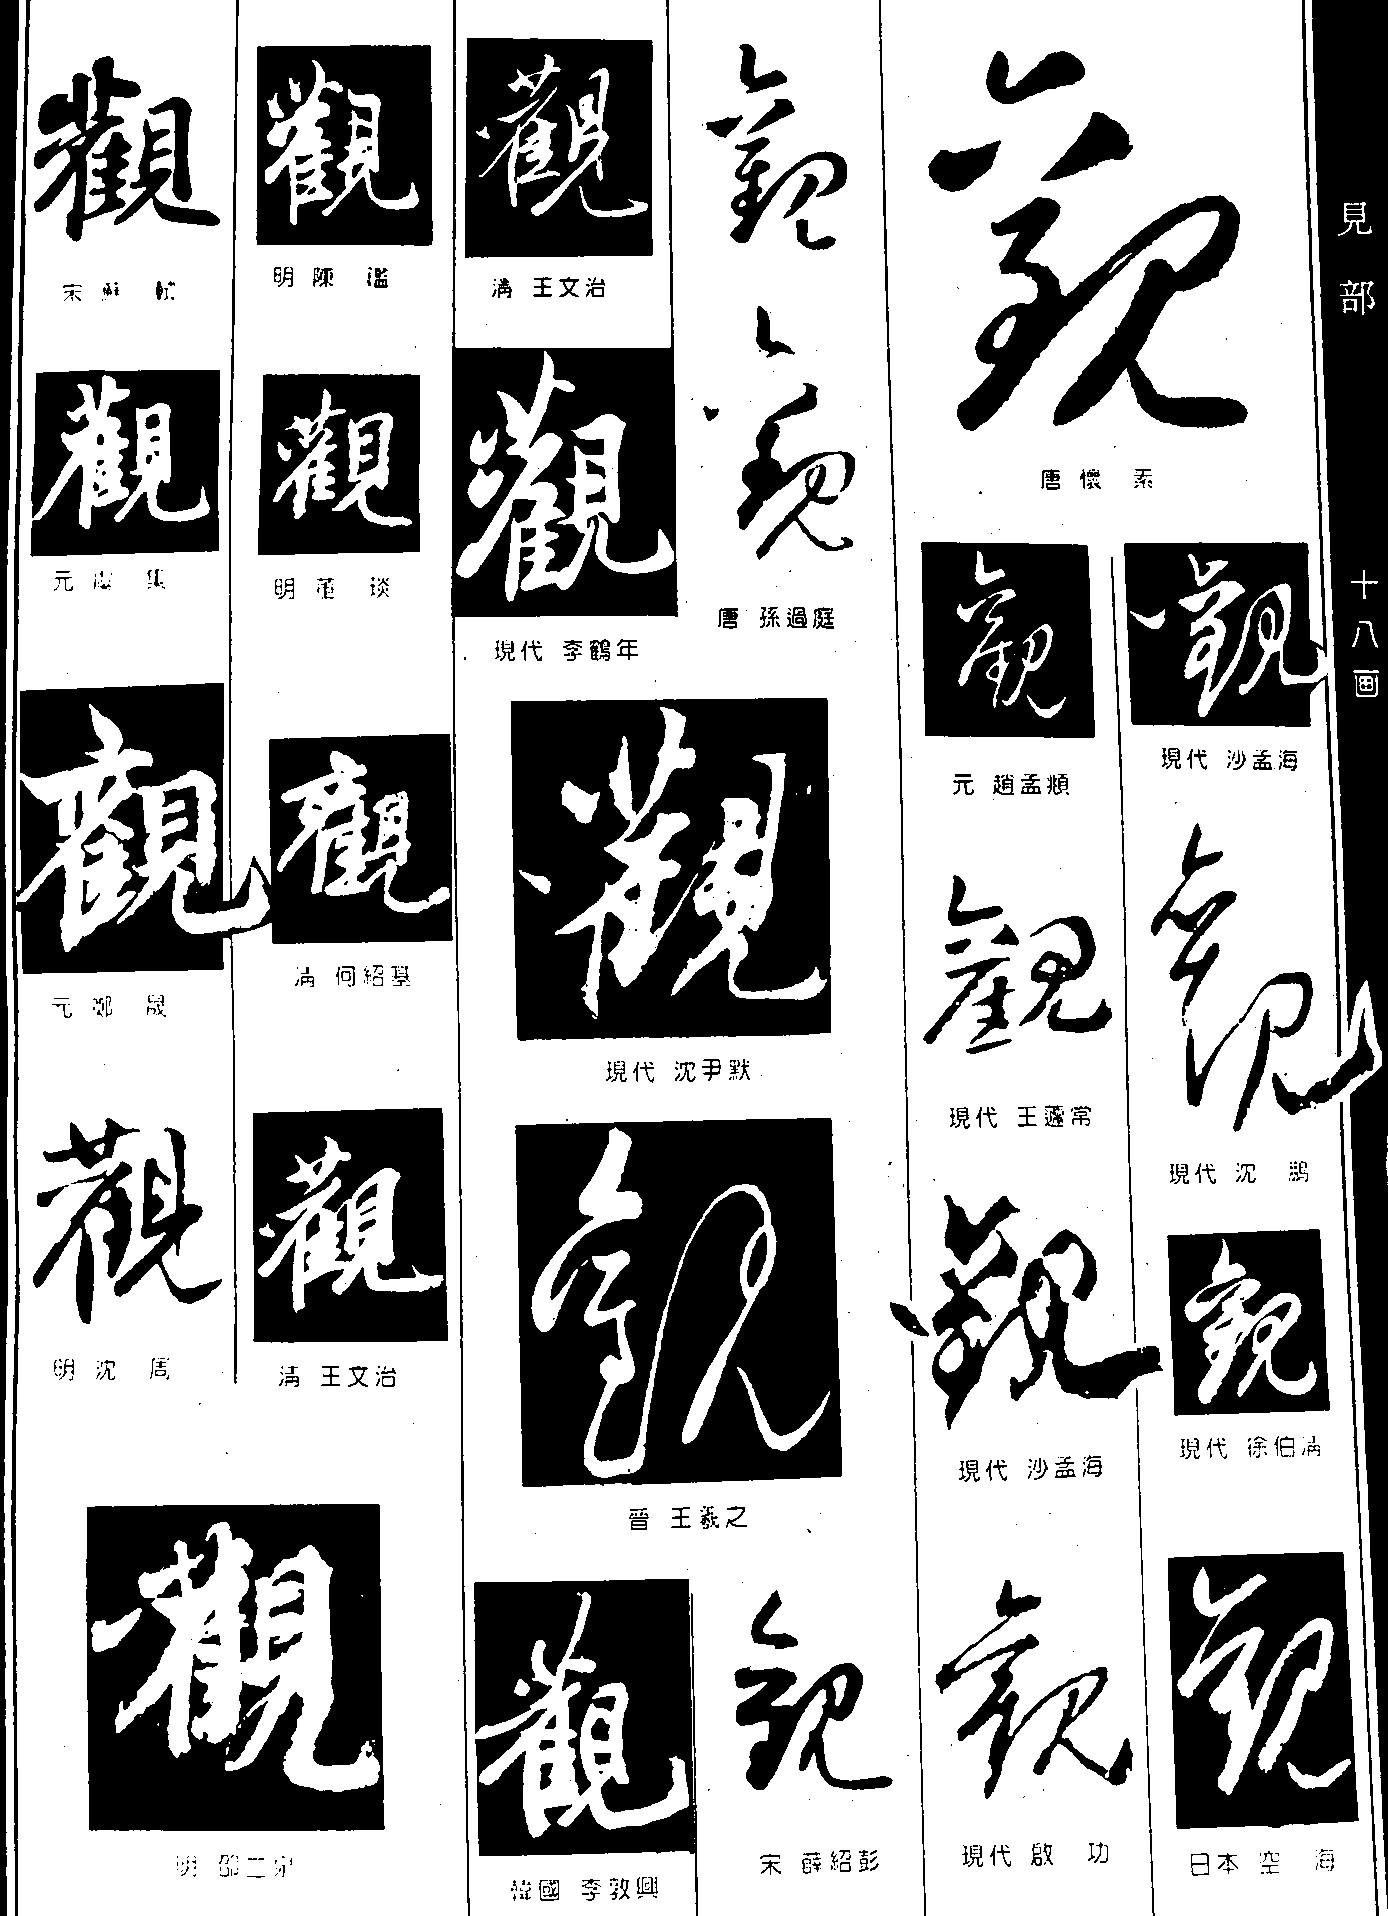 見部
十八画
觀
唐 懷素
觀
現代 沙孟海
觀
現代 沈鵬
觀
現代 徐伯清
觀
日本 空海
觀
元 趙孟頫
觀
現代 王蘧常
觀
現代 沙孟海
觀
現代 啟功
觀
觀
唐 孫過庭
觀
宋 薛紹彭
觀
清 王文治
觀
現代 李鶴年
觀
現代 沈尹默
觀
晉 王羲之
觀
韓國 李敦興
觀
明 陳
觀
明
觀
清 何紹基
觀
清 王文治
觀
宋 蘇軾
觀
元 虞集
觀
元
觀
明 沈周
觀
明